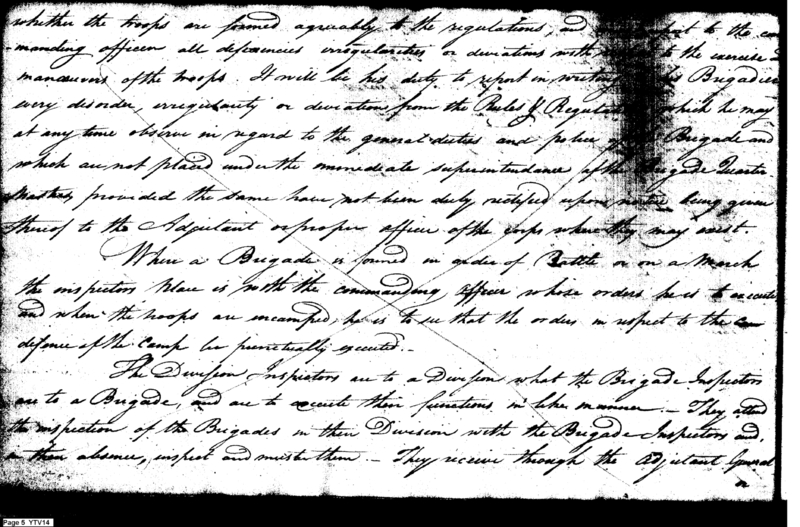 whether the troops are formed agreeably to the regulations, and report to the com
-manding officer all deficiencies irregularities or deviations with to the exercise &
manœuvers of the troops. It will be his duty to report in writing his Brigadier
every disorder, irregularity or deviation from the Rules & Regulations which he may
at any time observe in regard to the general duties and police of Brigade and
which are not placed under the immediate superintendance of the Brigade Quarter
Master, provided the same have not been duly rectified upon notice being given
thereof to the Adjutant or proper officer of the corps where they may exist.
When a Brigade is formed in order of Battle or on a March
the inspectors place is with the commanding officer whose orders he is to execute
and when the troops are encamped, he is to see that the orders in respect to the
defence of the Camp be punctually executed.-
The Division Inspectors are to a Division what the Brigade Inspectors
are to a Brigade, and are to execute their functions in like manner. - They attend
the inspection of the Brigades in their Division with the Brigade Inspectors and,
in their absence, inspect and muster them - They receive through the Adjutant General
a
Page 5 YTV14